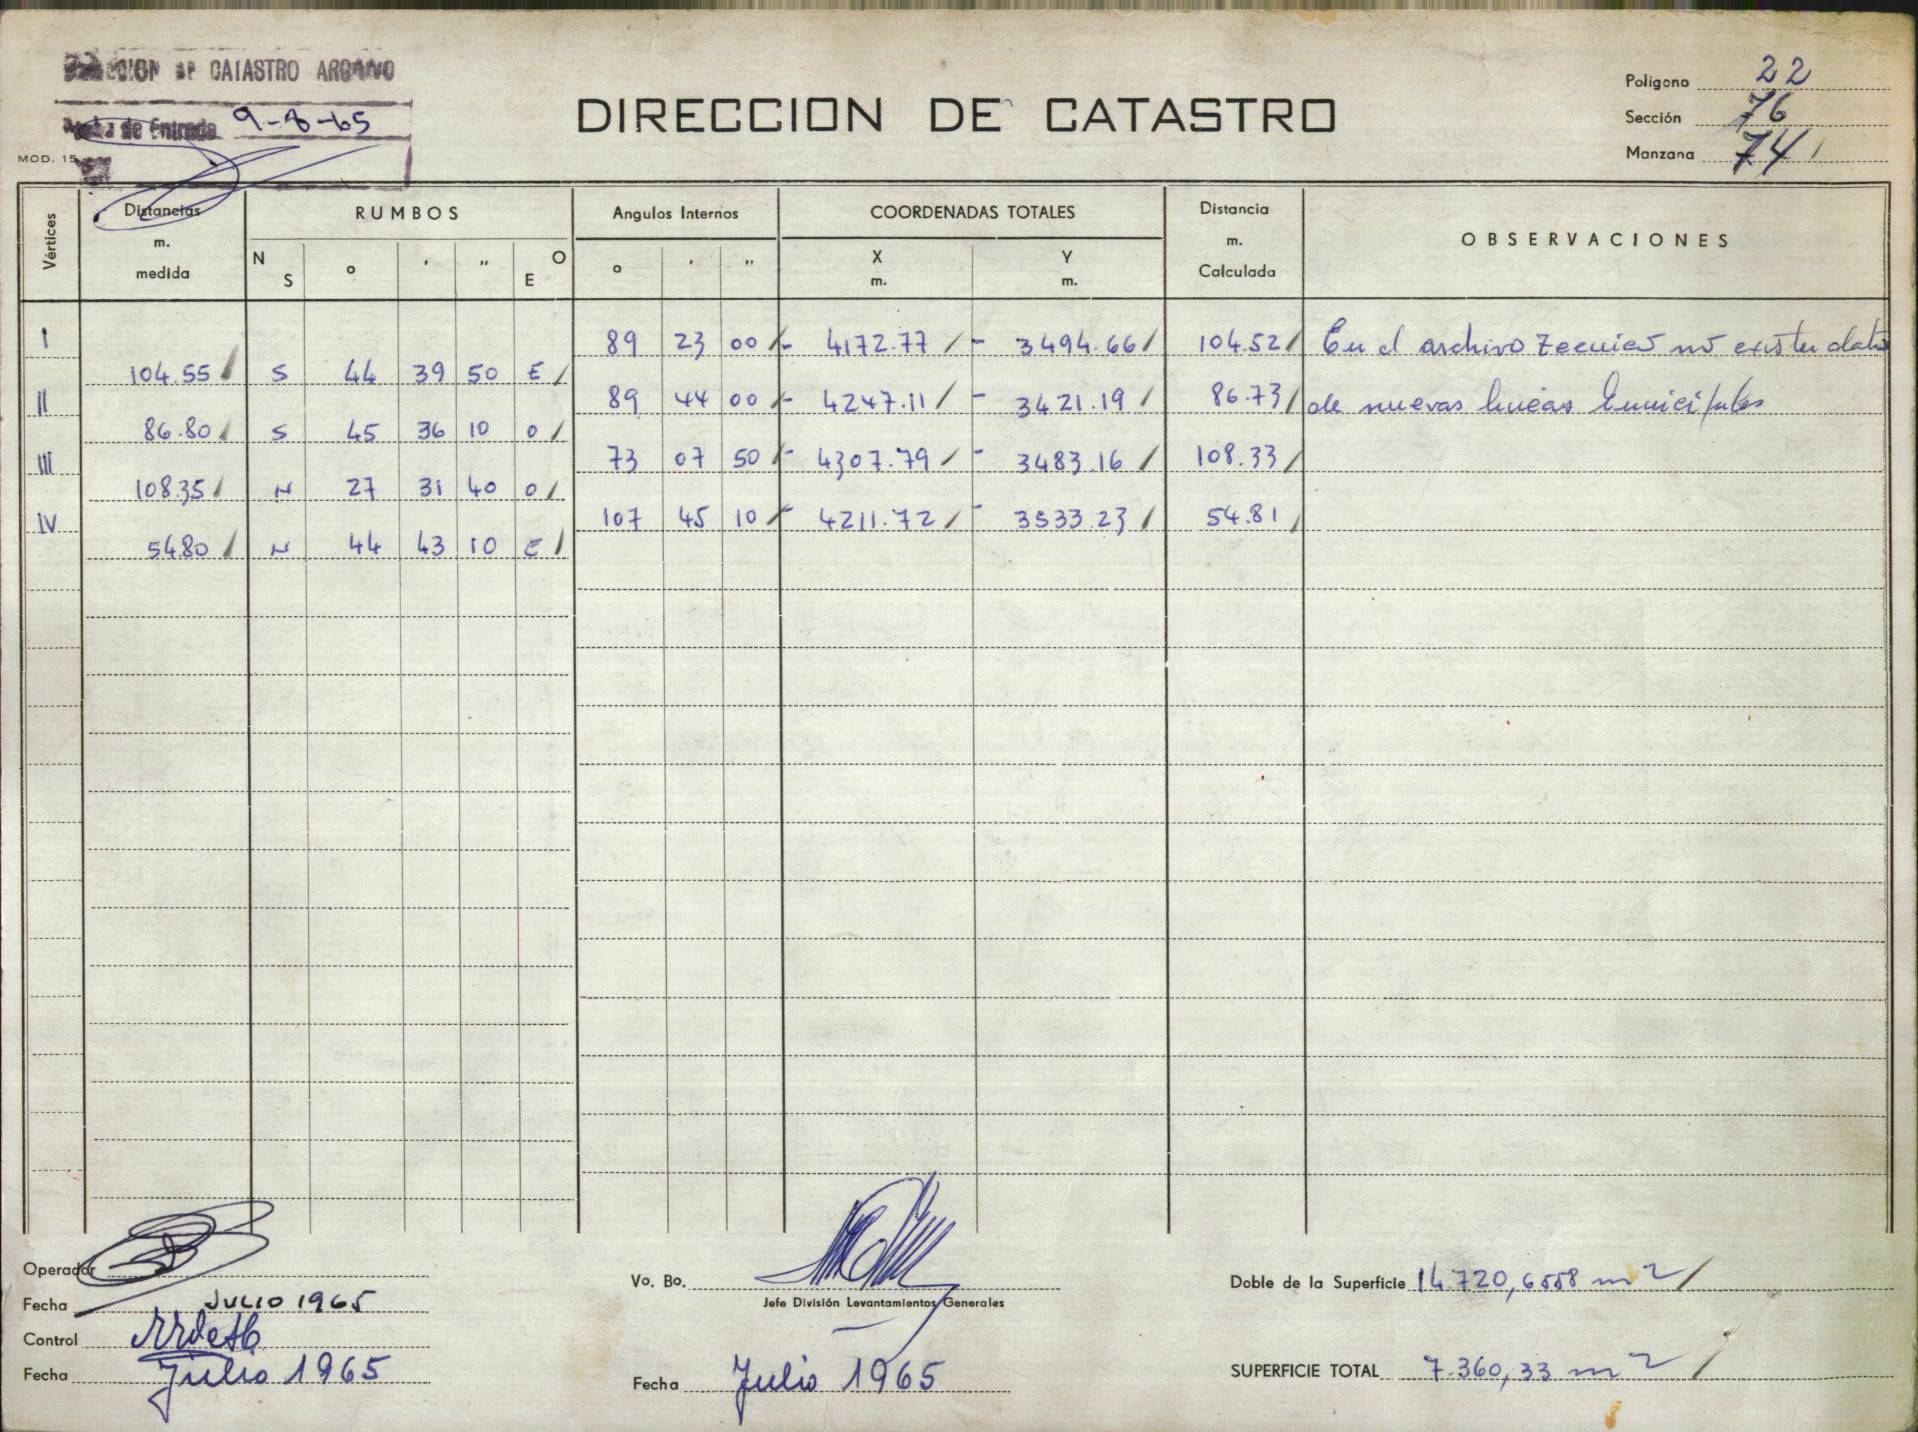 DIRECCION DE CATASTRO ARCHIVO
Fecha de Entrada 9-8-65
MOD. 15
DIRECCION DE CATASTRO
Poligono 22
Sección 76
Manzana 74
Vértices
Distancias
m.
medida
RUMBOS
N S ° ' " E O
Angulos Internos
° ' "
COORDENADAS TOTALES
X
m.
Y
m.
Distancia
m.
Calculada
OBSERVACIONES
I 89 23 00 - 4172.77 - 3494.66 104.52 En el archivo tecnico no existen datos
104.55 S 44 39 50 E
II 89 44 00 - 4247.11 - 3421.19 86.73 de nuevas lineas Municipales
86.80 S 45 36 10 O
III 73 07 50 - 4307.79 - 3483.16 108.33
108.35 N 27 31 40 O
IV 107 45 10 - 4211.72 - 3533.23 54.81
54.80 N 44 43 10 E
Operador
Fecha JULIO 1965
Control
Fecha Julio 1965
Vo. Bo.
Jefe División Levantamientos Generales
Fecha Julio 1965
Doble de la Superficie 14.720,6558 m2
SUPERFICIE TOTAL 7.360,33 m2